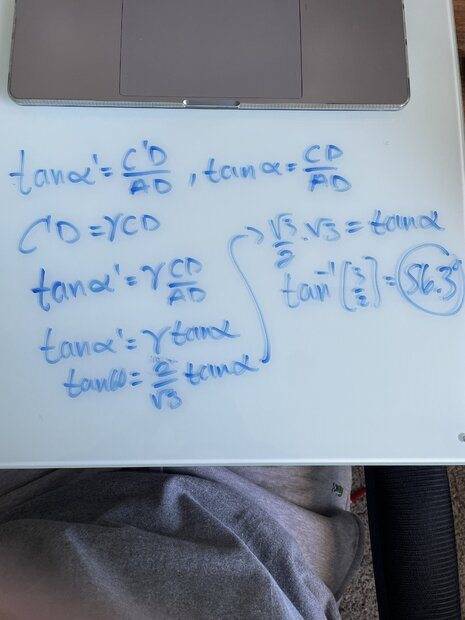 tanα' = C'D/AD , tanα = CD/AD
C'D = γCD
tanα' = γ CD/AD
tanα' = γ tanα
tan60 = 2/√3 tanα
→ √3/2 · √3 = tanα
tan⁻¹[3/2] = 56.3°